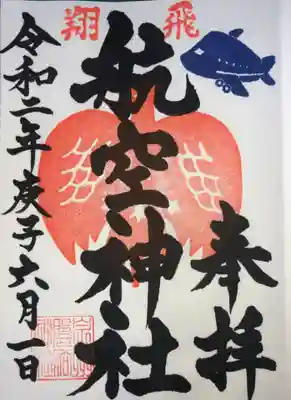 飛翔
奉拝
航空神社
令和二年庚子六月一日